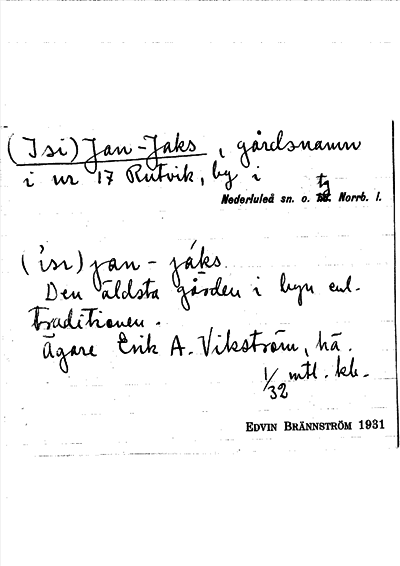 (Isi) Jan-Jaks, gårdsnamn
i nr 17 Rutvik, by i
Nederluleå sn. o. tg Norrb. l.
('isi) jan - jáks.
Den äldsta gården i byn enl.
traditionen.
Ägare Erik A. Vikström, hä.
1/32 mtl. kb.
EDVIN BRÄNNSTRÖM 1931